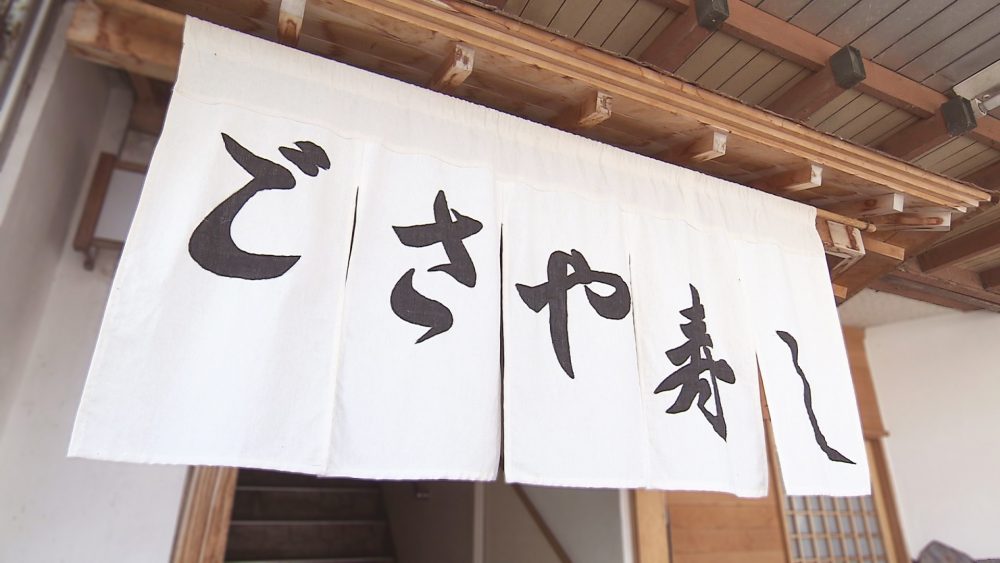 ごさや寿し